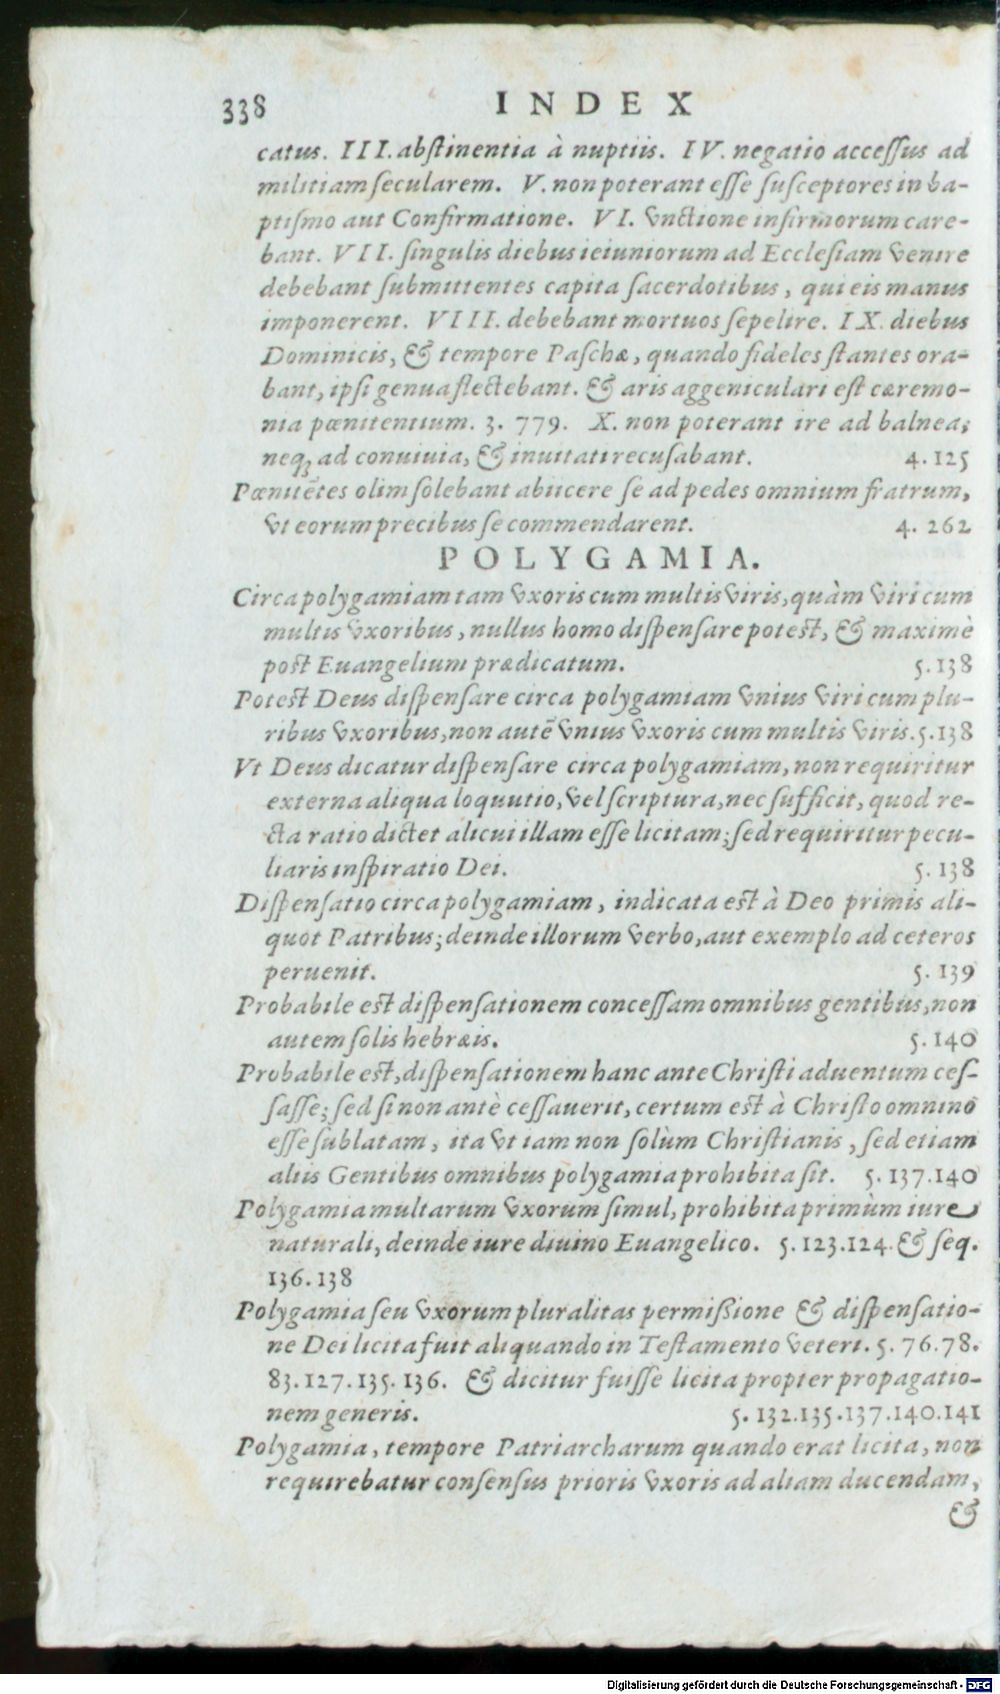 338 INDEX
catus. III. abſtinentia à nuptiis. IV. negatio acceſſus ad
militiam ſecularem. V. non poterant eſſe ſuſceptores in ba-
ptiſmo aut Confirmatione. VI. vnctione infirmorum care-
bant. VII. ſingulis diebus ieiuniorum ad Eccleſiam venire
debebant ſubmittentes capita ſacerdotibus, qui eis manus
imponerent. VIII. debebant mortuos ſepelire. IX. diebus
Dominicis, & tempore Paſchæ, quando fideles ſtantes ora-
bant, ipſi genua flectebant. & aris aggeniculari eſt cæremo-
nia pœnitentium. 3. 779. X. non poterant ire ad balnea;
neq; ad conuiuia, & inuitati recuſabant. 4. 125
Pœnitẽtes olim ſolebant abiicere ſe ad pedes omnium fratrum,
vt eorum precibus ſe commendarent. 4. 262
POLYGAMIA.
Circa polygamiam tam vxoris cum multis viris, quàm viri cum
multis vxoribus, nullus homo diſpenſare poteſt, & maximè
poſt Euangelium prædicatum. 5. 138
Poteſt Deus diſpenſare circa polygamiam vnius viri cum plu-
ribus vxoribus, non autẽ vnius vxoris cum multis viris. 5. 138
Vt Deus dicatur diſpenſare circa polygamiam, non requiritur
externa aliqua loquutio, vel ſcriptura, nec ſufficit, quod re-
cta ratio dictet alicui illam eſſe licitam; ſed requiritur pecu-
liaris inſpiratio Dei. 5. 138
Diſpenſatio circa polygamiam, indicata eſt à Deo primis ali-
quot Patribus; deinde illorum verbo, aut exemplo ad ceteros
peruenit. 5. 139
Probabile eſt diſpenſationem conceſſam omnibus gentibus, non
autem ſolis hebræis. 5. 140
Probabile eſt, diſpenſationem hanc ante Chriſti aduentum ceſ-
ſaſſe; ſed ſi non antè ceſſauerit, certum eſt à Chriſto omnino
eſſe ſublatam, ita vt iam non ſolùm Chriſtianis, ſed etiam
aliis Gentibus omnibus polygamia prohibita ſit. 5. 137. 140
Polygamia multarum vxorum ſimul, prohibita primùm iure
naturali, deinde iure diuino Euangelico. 5. 123. 124. & ſeq.
136. 138
Polygamia ſeu vxorum pluralitas permiſſione & diſpenſatio-
ne Dei licita fuit aliquando in Teſtamento veteri. 5. 76. 78.
83. 127. 135. 136. & dicitur fuiſſe licita propter propagatio-
nem generis. 5. 132. 135. 137. 140. 141
Polygamia, tempore Patriarcharum quando erat licita, non
requirebatur conſenſus prioris vxoris ad aliam ducendam,
&
Digitalisierung gefördert durch die Deutsche Forschungsgemeinschaft - DFG